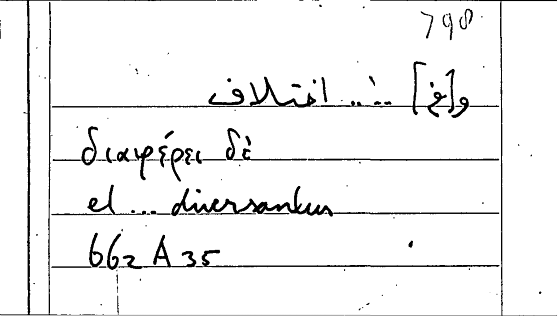 798
و[في] ... اختلاف
διαφέρει δὲ
et ... diversantur
662 A 35